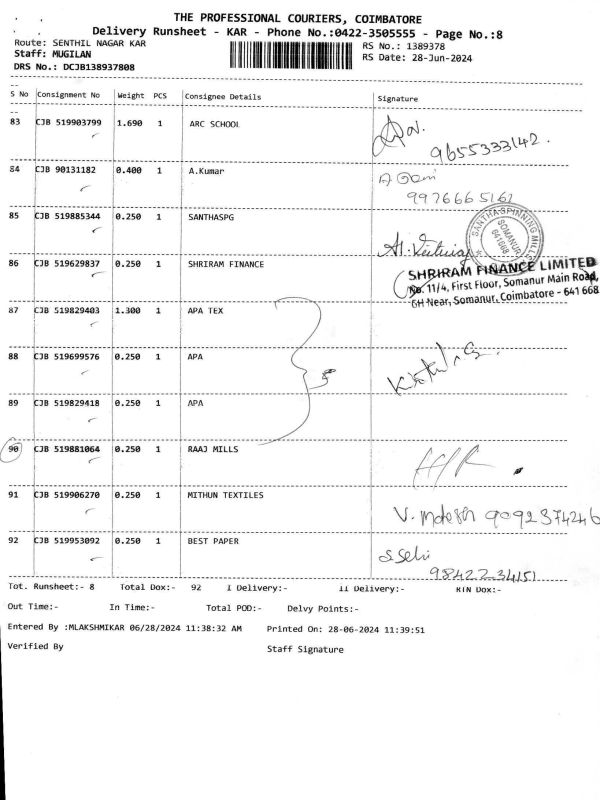 THE PROFESSIONAL COURIERS, COIMBATORE
Delivery Runsheet - KAR - Phone No.:0422-3505555 - Page No.:8
Route: SENTHIL NAGAR KAR RS No.: 1389378
Staff: MUGILAN RS Date: 28-Jun-2024
DRS No.: DCJB138937808
S No Consignment No Weight PCS Consignee Details Signature
83 CJB 519903799 1.690 1 ARC SCHOOL
9655333142.
84 CJB 90131182 0.400 1 A.Kumar
9976665161
85 CJB 519885344 0.250 1 SANTHASPG
SANTHA SPINNING MILLS
SOMANUR
641668
86 CJB 519629837 0.250 1 SHRIRAM FINANCE
SHRIRAM FINANCE LIMITED
No. 11/4, First Floor, Somanur Main Road,
GH Near, Somanur, Coimbatore - 641 668
87 CJB 519829403 1.300 1 APA TEX
88 CJB 519699576 0.250 1 APA
89 CJB 519829418 0.250 1 APA
90 CJB 519881064 0.250 1 RAAJ MILLS
91 CJB 519906270 0.250 1 MITHUN TEXTILES
9092374246
92 CJB 519953092 0.250 1 BEST PAPER
S. Selvi
9842234151
Tot. Runsheet:- 8 Total Dox:- 92 I Delivery:- II Delivery:- RTN Dox:-
Out Time:- In Time:- Total POD:- Delvy Points:-
Entered By :MLAKSHMIKAR 06/28/2024 11:38:32 AM Printed On: 28-06-2024 11:39:51
Verified By Staff Signature